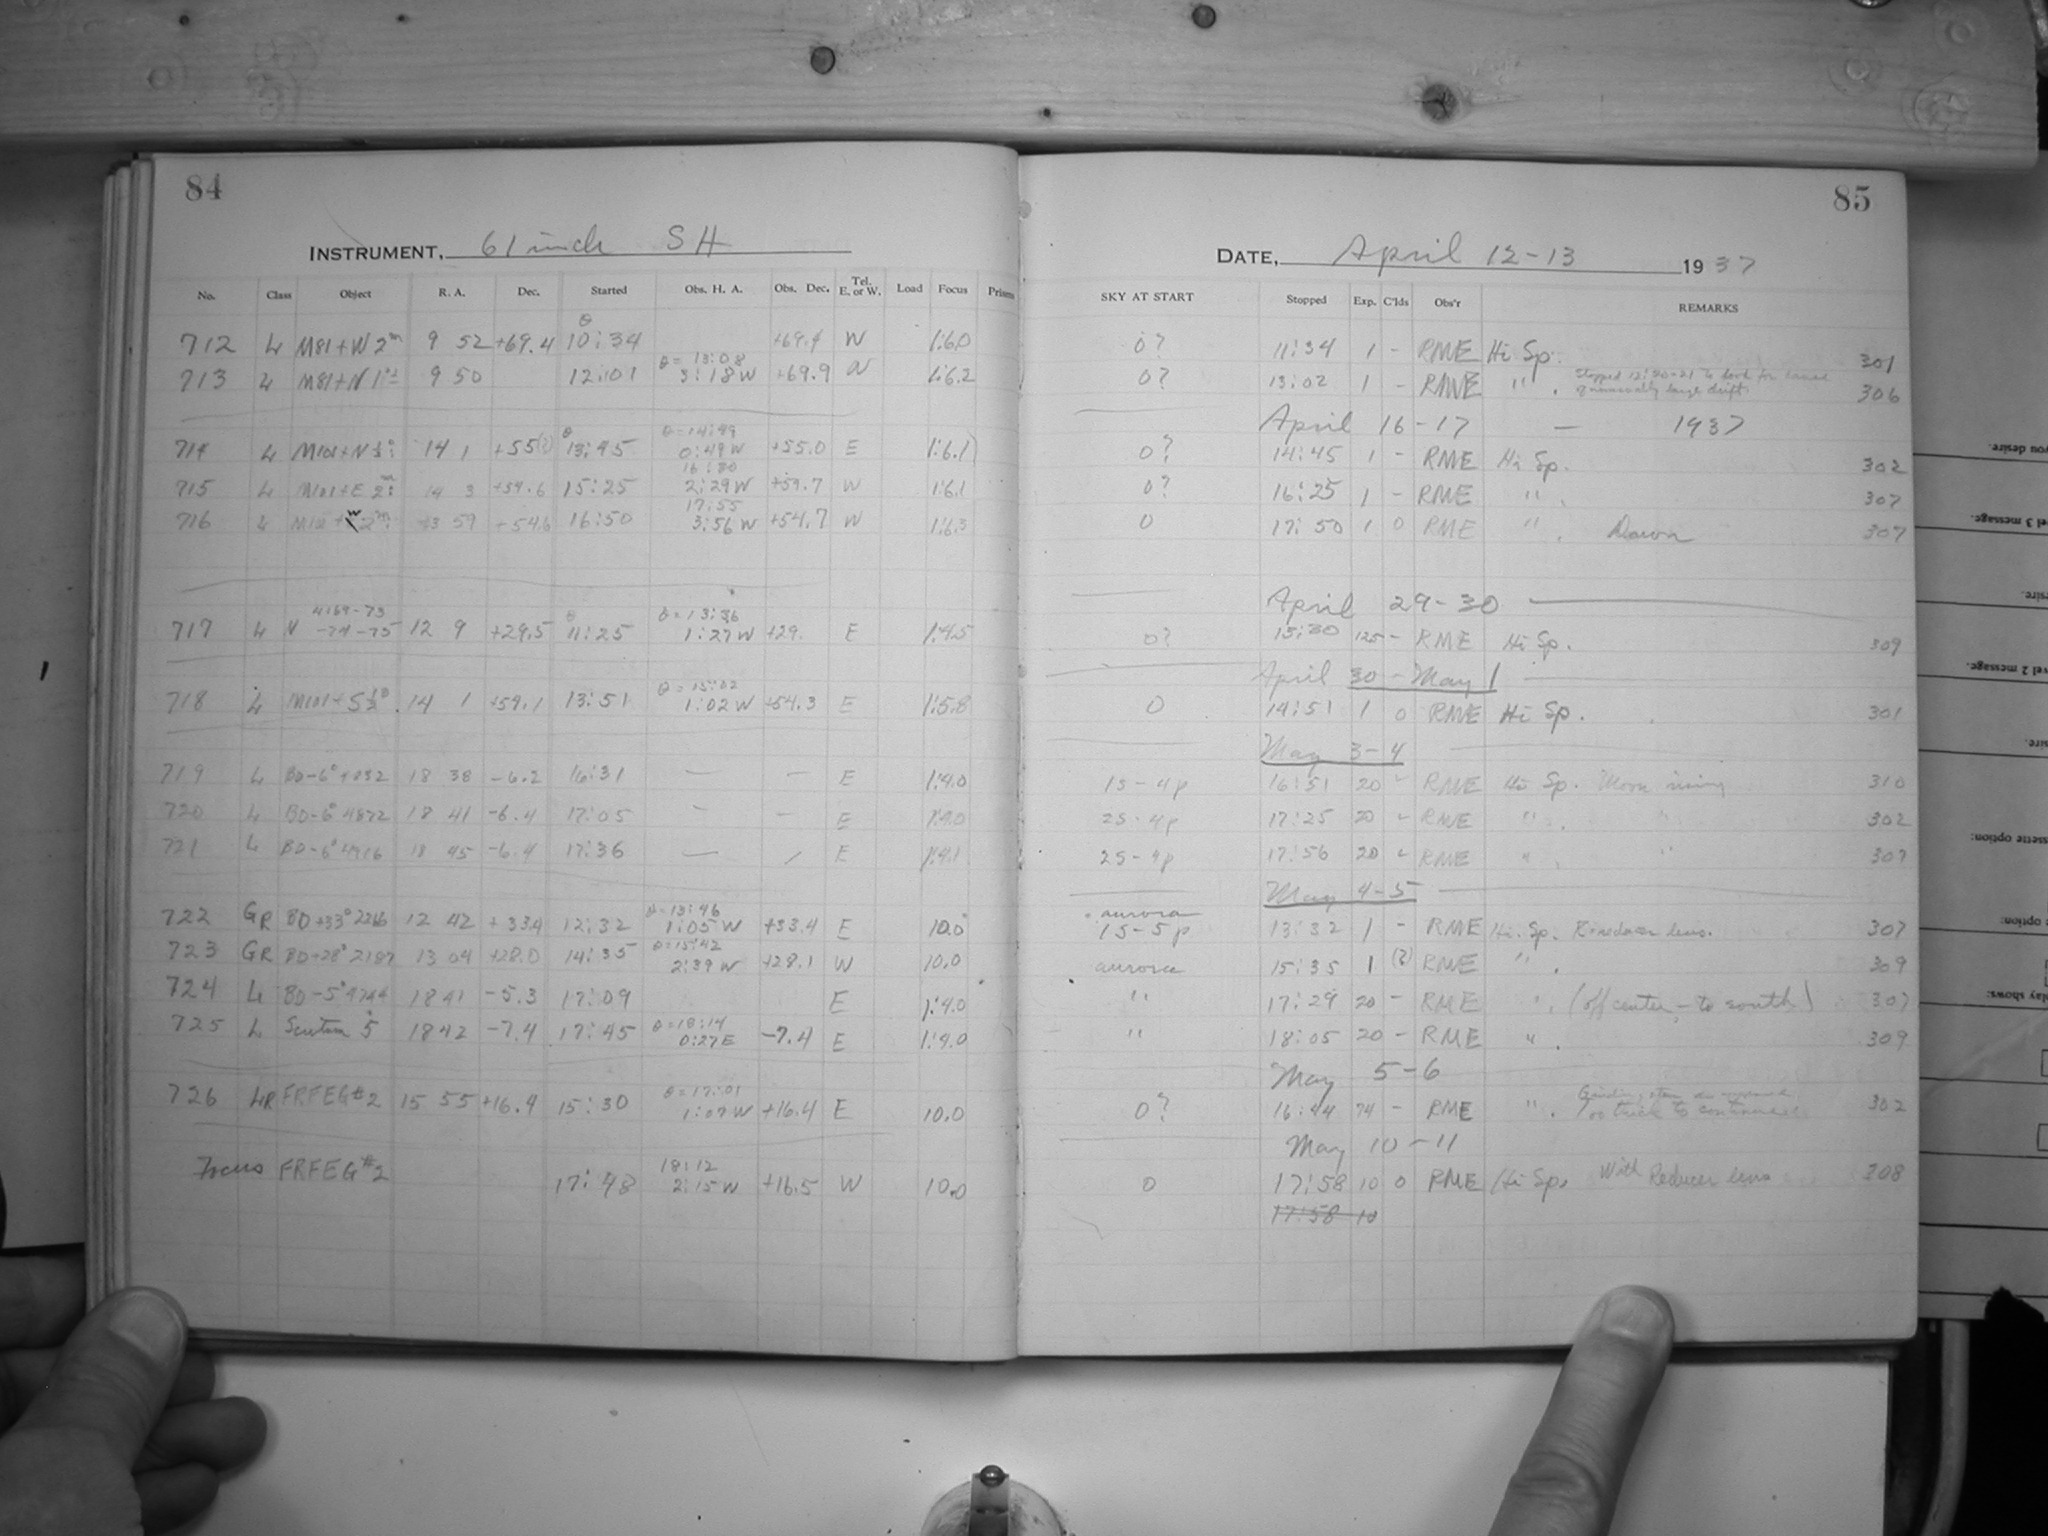 84
INSTRUMENT, 61 inch SH
No. Class Object R. A. Dec. Started Obs. H. A. Obs. Dec. Tel. E. or W. Load Focus Prism
θ
712 L M81+W 2m 9 52 +69.4 10:34 +69.4 W 1:6.0
θ = 13:08
713 L M81+N 9 50 12:01 3:18 W +69.9 W 1:6.2
θ θ = 14:49
714 L M101+N 14 1 +55(?) 13:45 0:49 W +55.0 E 1:6.1
16:30
715 L M101+E 2m 14 3 +54.6 15:25 2:29 W +54.7 W 1:6.1
17:55
716 L M101+W 2m 13 59 +54.6 16:50 3:56 W +54.7 W 1:6.3
4169-73 θ θ = 13:36
717 L N -74-75 12 9 +29.5 11:25 1:27 W +29. E 1:4.5
θ = 15:02
718 L M101+S 14 1 +54.1 13:51 1:02 W +54.3 E 1:5.8
719 L 18 38 -6.2 16:31 — — E 1:4.0
720 L BD-6° 4872 18 41 -6.4 17:05 - — E 1:4.0
721 L BD-6° 4916 18 45 -6.4 17:36 — - E 1:4.1
θ = 13:46
722 GR BD+33° 2266 12 42 +33.4 12:32 1:05 W +33.4 E 10.0
θ = 15:42
723 GR BD+28° 2187 13 04 +28.0 14:35 2:39 W +28.1 W 10.0
724 L BD-5° 4744 18 41 -5.3 17:09 E 1:4.0
θ = 18:14
725 L Scutum 5 18 42 -7.4 17:45 0:27 E -7.4 E 1:4.0
θ = 17:01
726 LR FRFEG#2 15 55 +16.4 15:30 1:07 W +16.4 E 10.0
18:12
Focus FRFEG#2 17:48 2:15 W +16.5 W 10.0
85
DATE, April 12-13 1937
SKY AT START Stopped Exp. C'lds Obs'r REMARKS
0? 11:34 1 - RME Hi Sp. 301
Stopped 12:20-21 to look for cause
0? 13:02 1 - RME " . of unusually large drift. 306
April 16-17 — 1937
0? 14:45 1 - RME Hi Sp. 302
0? 16:25 1 - RME " . 307
0 17:50 1 0 RME " . Dawn 307
April 29-30
0? 13:30 125 - RME Hi Sp. 309
April 30 - May 1
0 14:51 1 0 RME Hi Sp. 301
May 3-4
1S-4p 16:51 20 - RME Hi Sp. Moon rising 310
2S-4p 17:25 20 - RME " . " 302
2S-4p 17:56 20 - RME " . " 307
May 4-5
aurora
1S-5p 13:32 1 - RME Hi. Sp. Reducer lens. 307
aurora 15:35 1 (?) RME " . 309
" 17:29 20 - RME " . (off center - to south) 307
" 18:05 20 - RME " . 309
May 5-6
0? 16:44 74 - RME " . Guiding too to continue 302
May 10-11
0 17:58 10 0 RME Hi Sp. With Reducer lens 308
17:58 10
you desire.
el 3 message.
sire.
vel 2 message.
sire.
ssette option:
e option:
play shows: